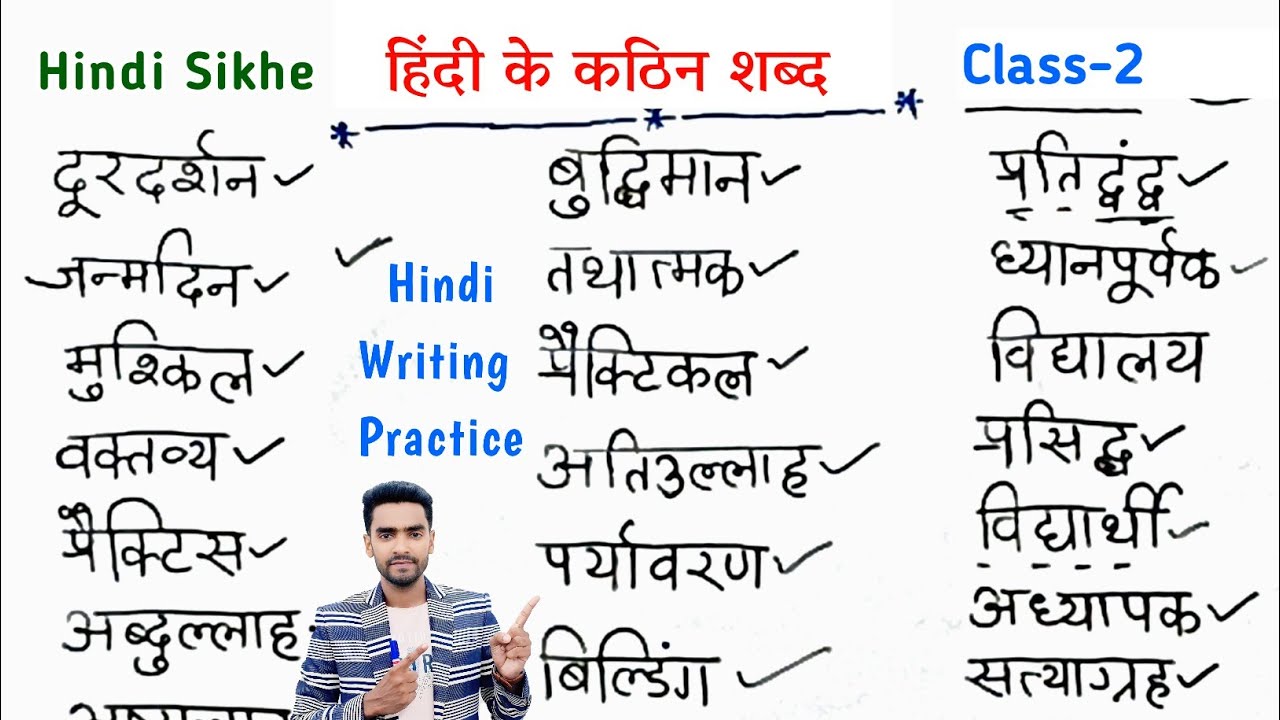 Hindi Sikhe
हिंदी के कठिन शब्द
Class-2
दूरदर्शन
जन्मदिन
मुश्किल
वक्तव्य
प्रैक्टिस
अब्दुल्लाह
Hindi
Writing
Practice
बुद्धिमान
तथात्मक
प्रैक्टिकल
अतिउल्लाह
पर्यावरण
बिल्डिंग
प्रतिद्वंद्व
ध्यानपूर्वक
विद्यालय
प्रसिद्ध
विद्यार्थी
अध्यापक
सत्याग्रह